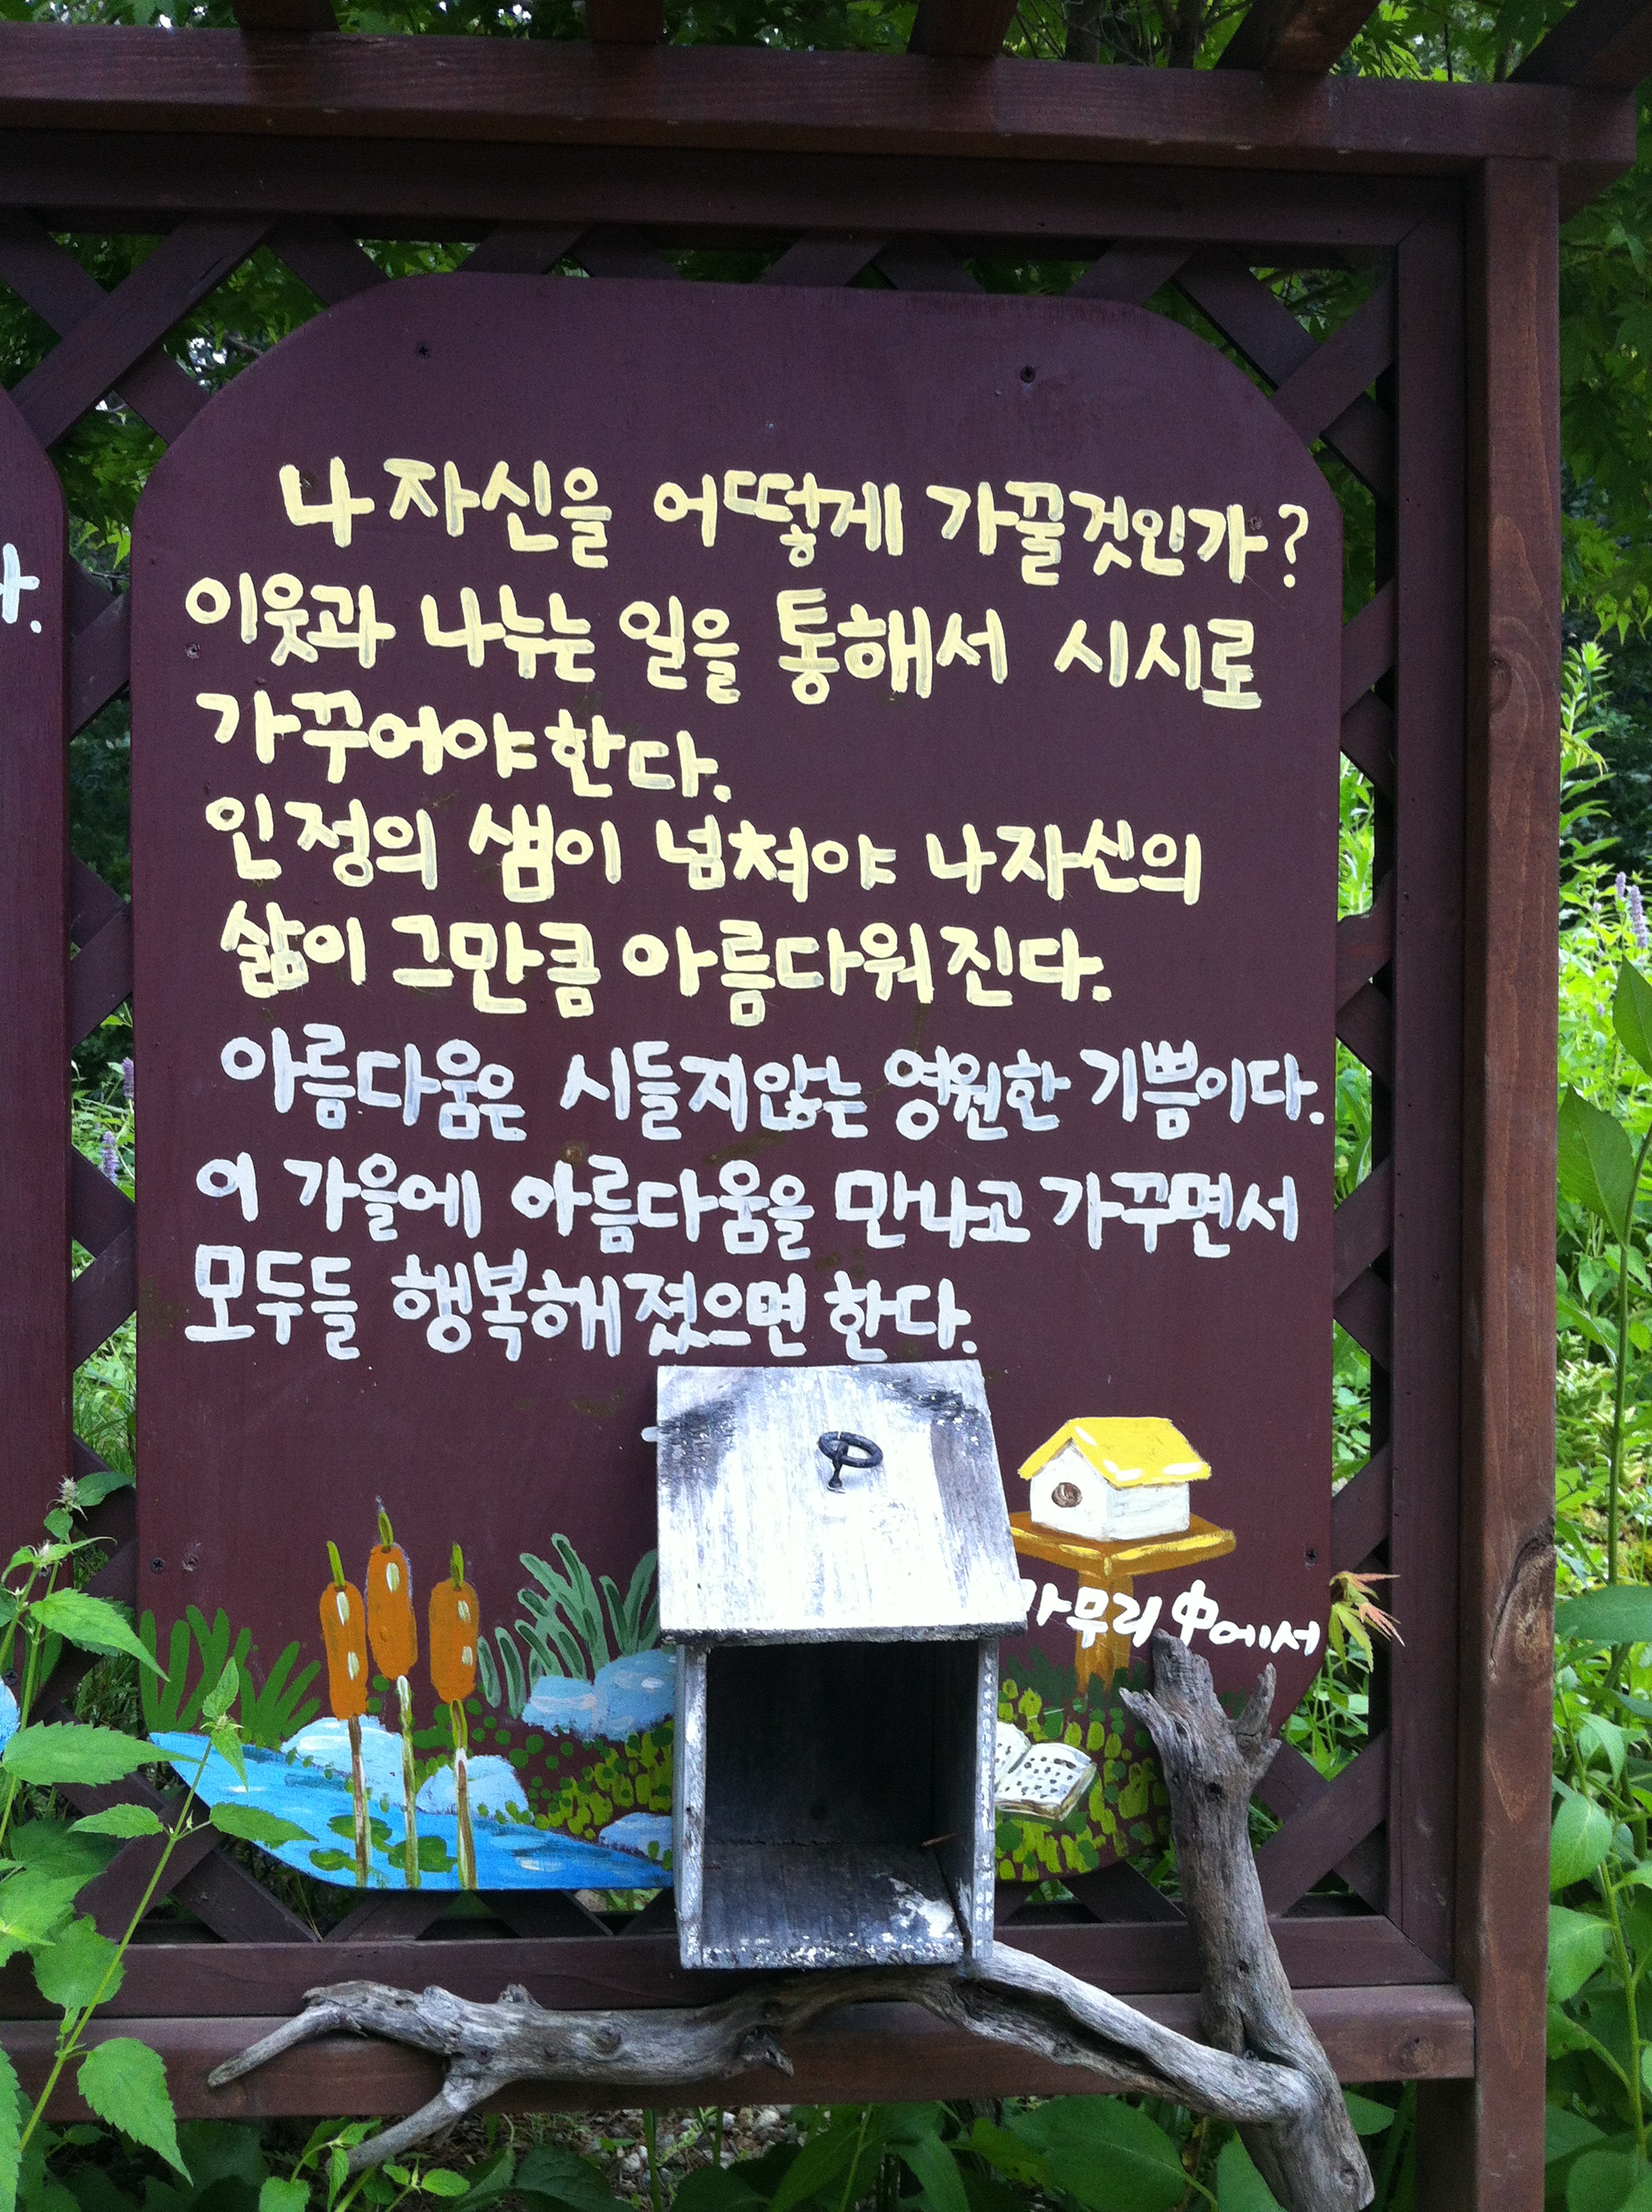 나 자신을 어떻게 가꿀것인가?
이웃과 나누는 일을 통해서 시시로
가꾸어야 한다.
인정의 샘이 넘쳐야 나자신의
삶이 그만큼 아름다워진다.
아름다움은 시들지않는 영원한 기쁨이다.
이 가을에 아름다움을 만나고 가꾸면서
모두들 행복해졌으면 한다.
中에서